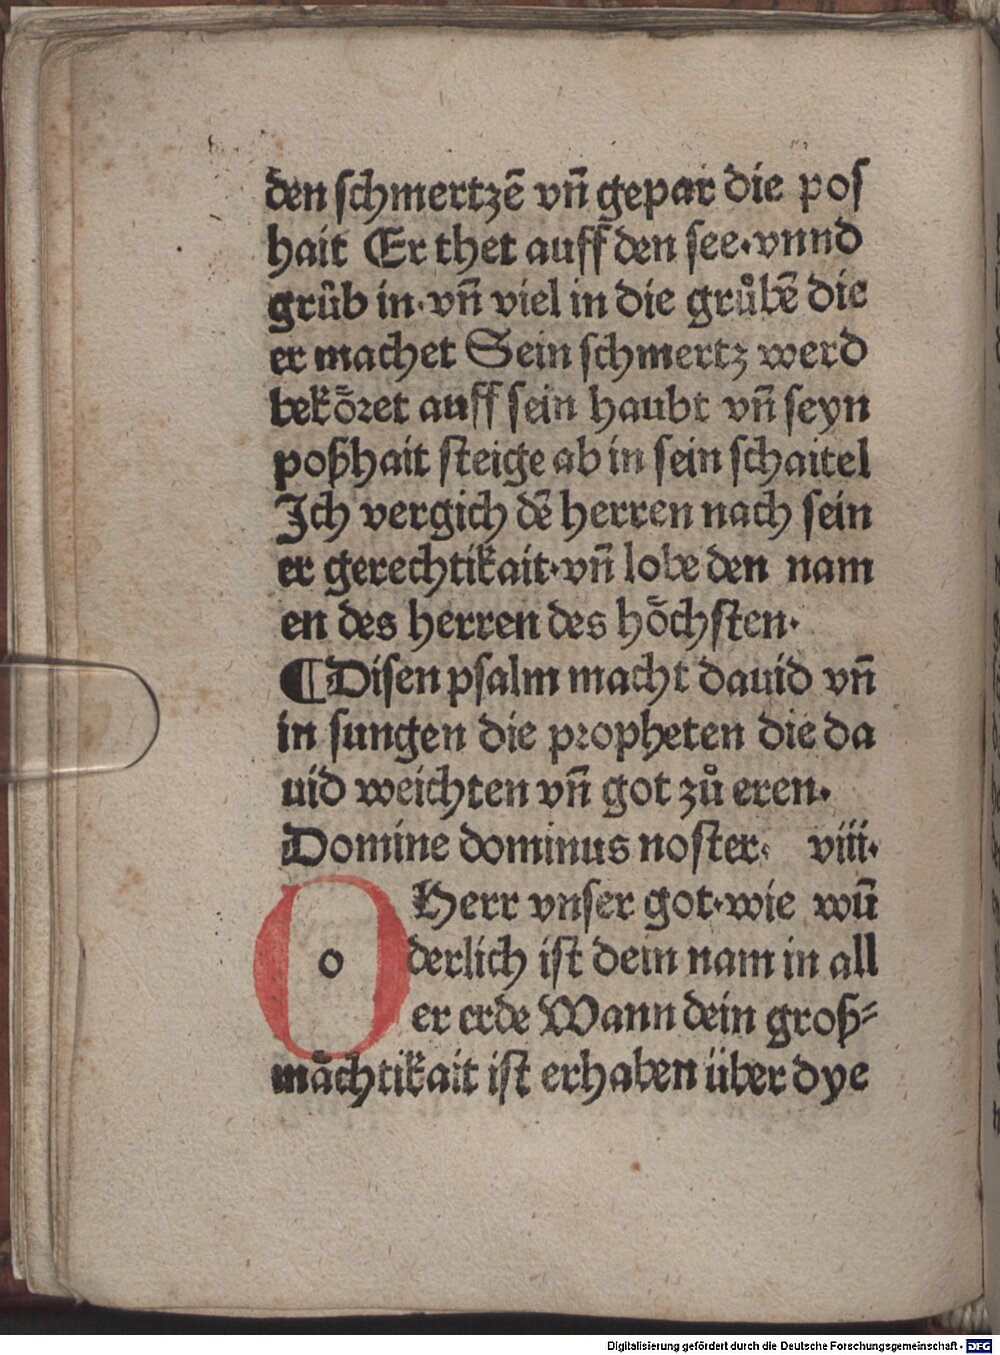 den ſchmertzē vn̄ gepar die poſ
hait Er thet auff den ſee·vnnd
grůb in·vn̄ viel in die grůbē die
er machet Sein ſchmertz werd
bekoͤꝛet auff ſein haubt vn̄ ſeyn
poßhait ſteige ab in ſein ſchaitel
Jch vergich dē herren nach ſein
er gerechtikait·vn̄ lobe den nam
en des herren des hoͤchſten·
¶Diſen pſalm macht dauid vn̄
in ſungen die pꝛopheten die da
uid weichten vn̄ got zů eren·
Domine dominus noſter· viii·
o
Herr vnſer got·wie wū
derlich iſt dein nam in all
er erde Wann dein groß⸗
maͤchtikait iſt erhaben über dye
Digitalisierung gefördert durch die Deutsche Forschungsgemeinschaft - DFG